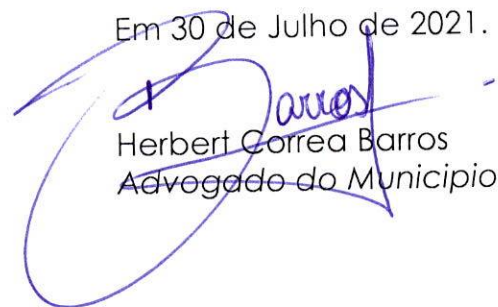 Em 30 de Julho de 2021.
Barros
Herbert Correa Barros
Advogado do Municipio